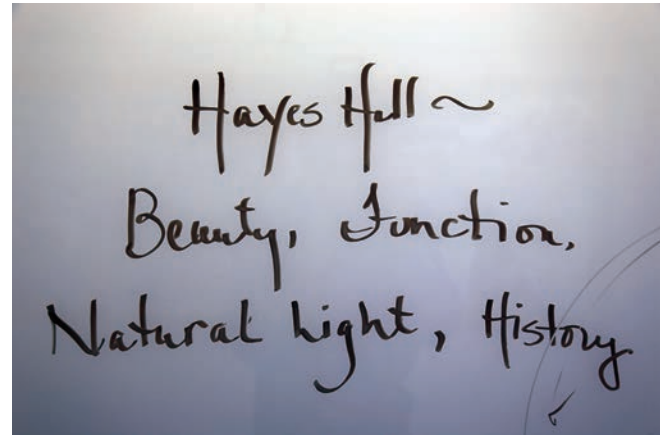 Hayes Hall ~
Beauty, Function,
Natural Light, History